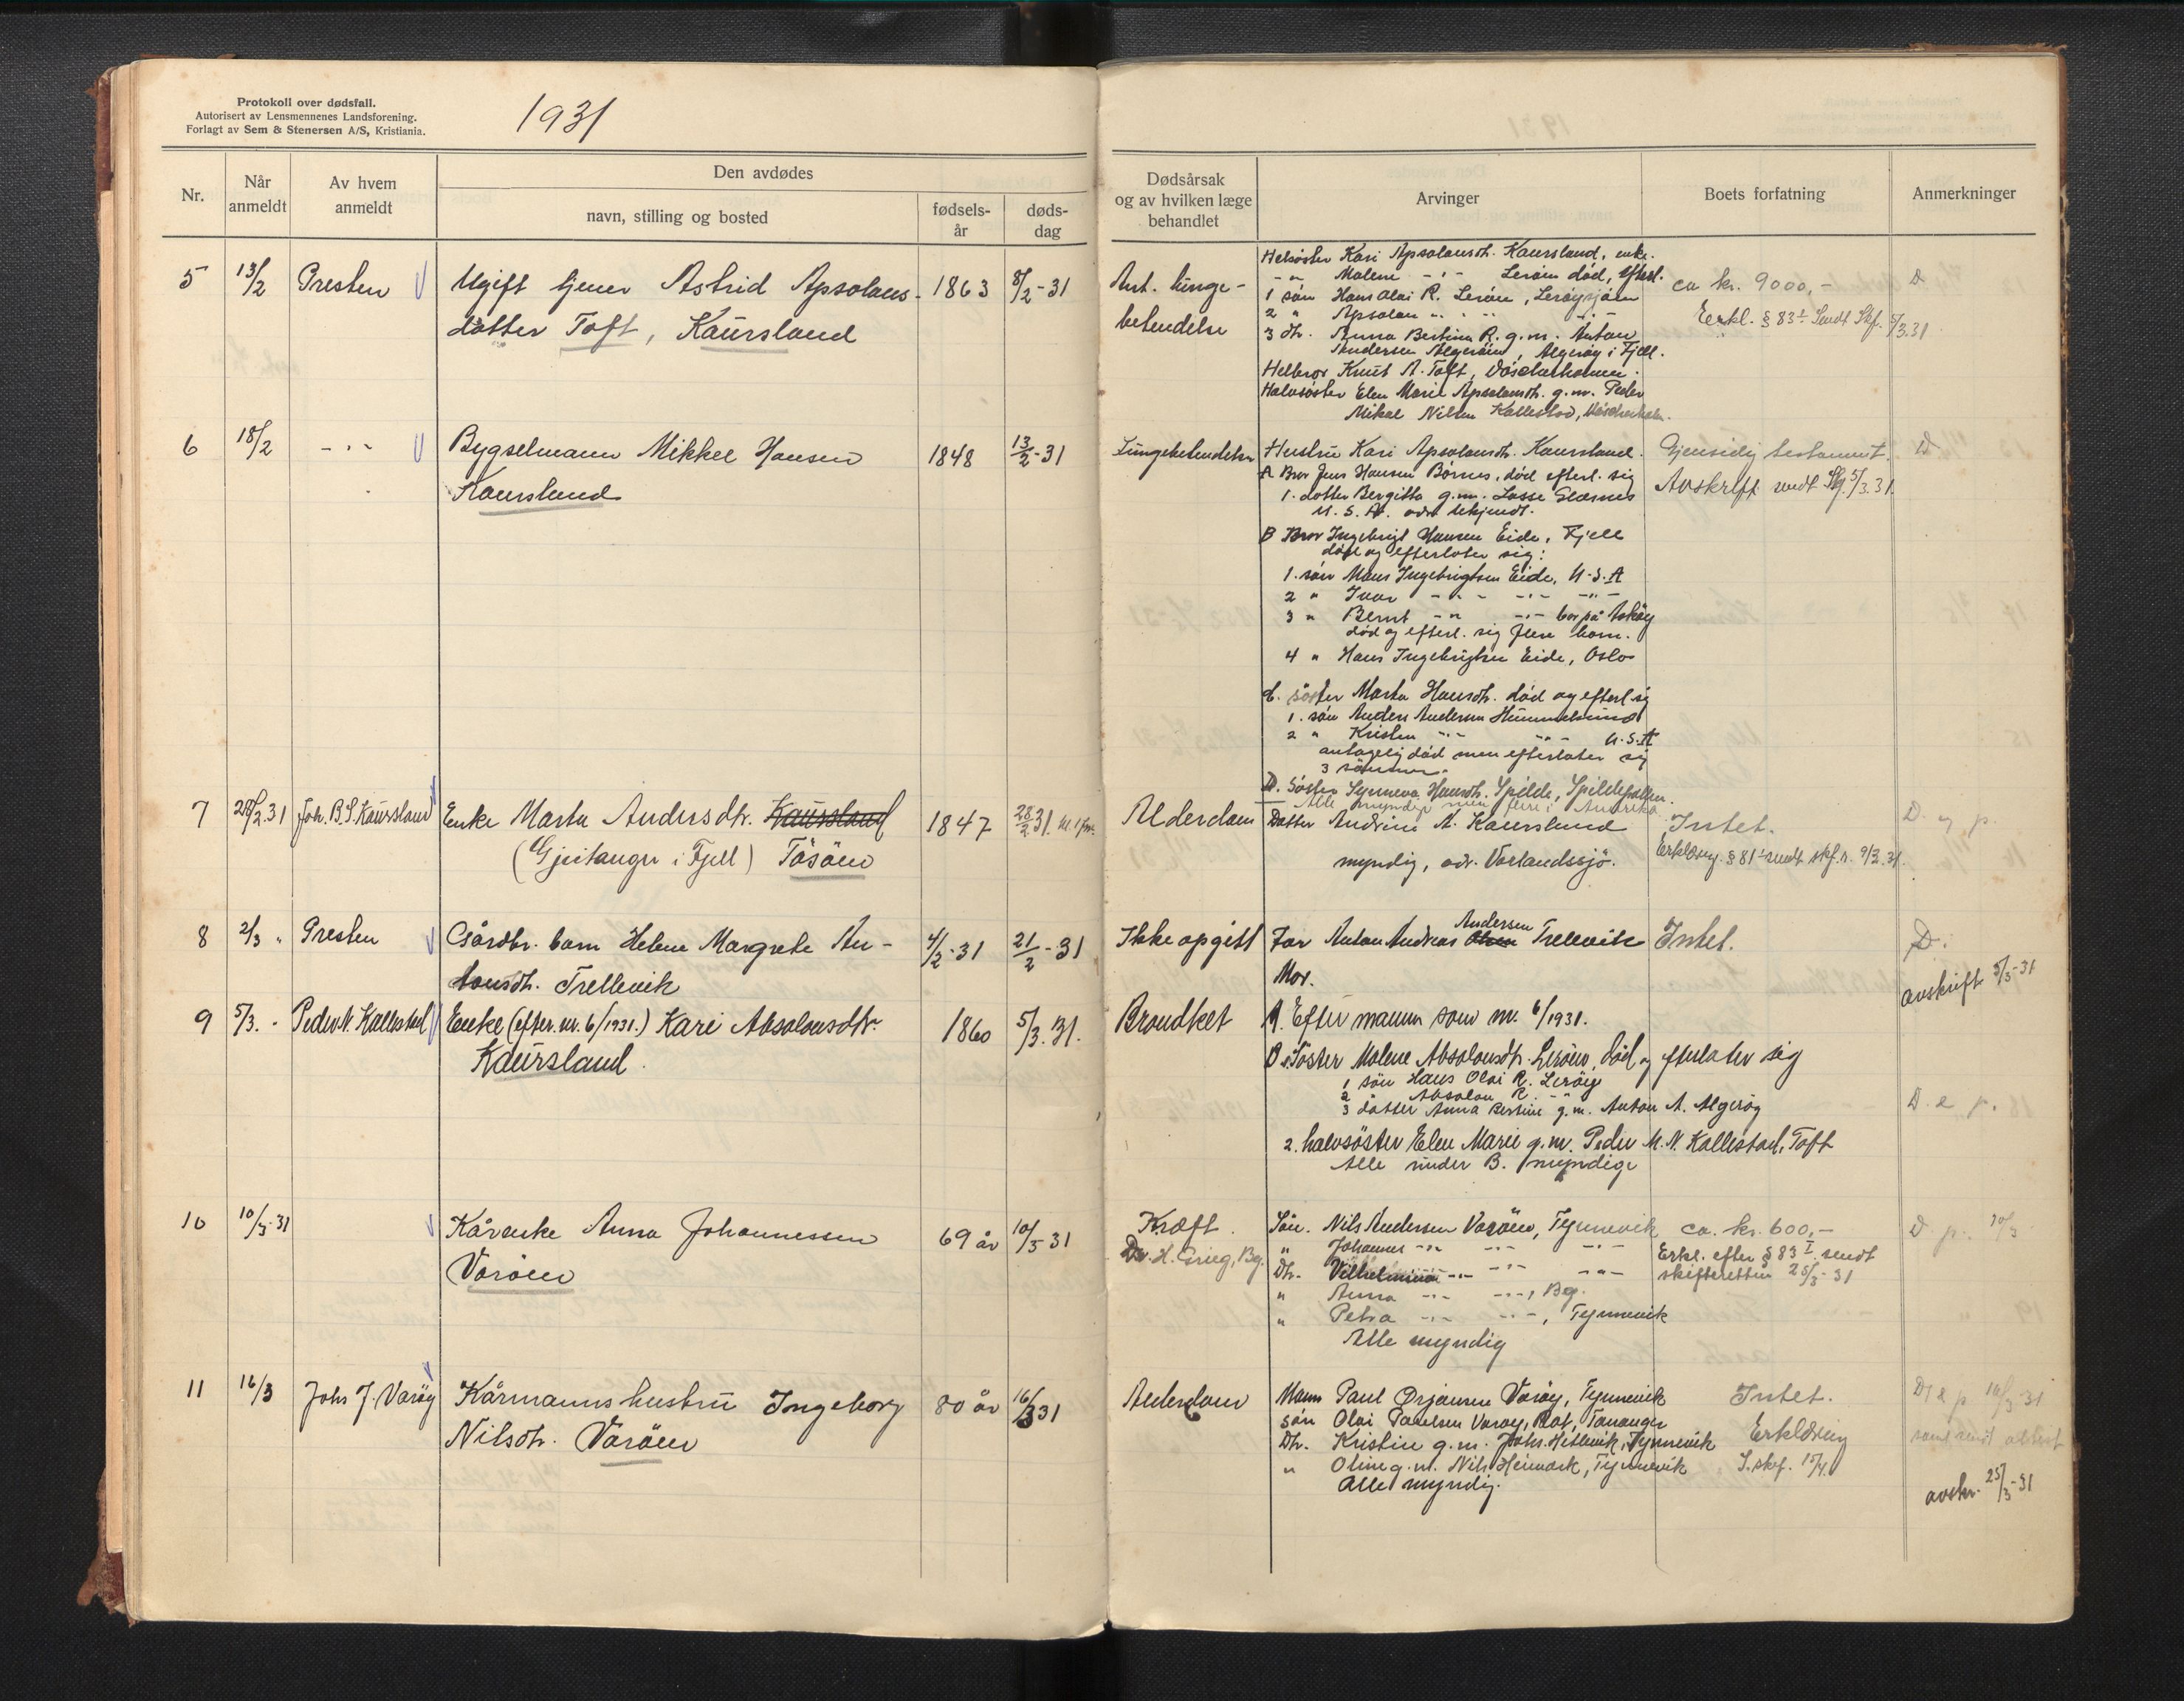 Protokoll over dødsfall.
Autorisert av Lensmennenes Landsforening.
Forlagt av Sem & Stenersen A/S, Kristiania.
1931
Nr.
Når anmeldt
Av hvem anmeldt
Den avdødes
navn, stilling og bosted
fødselsår
dødsdag
Dødsårsak og av hvilken læge behandlet
Arvinger
Boets forfatning
Anmerkninger
5 13/2 Presten Ugift tjener Astrid Apsolons- 1863 8/2-31
datter Toft, Kaursland
Ant. lunge-
betendelse
Helsøster Kari Apsolonsdt. Kaursland, enke.
-"- Malene -"- Lerøen død, efterl.
1 søn Hans Olai R. Lerøen, Lerøysjøen
2 " Apsolon " " " -"-
3 dt. Anna Bertina R. g.m. Anton
Andersen Algerøen, Algerøy i Fjell.
Helbror Knut A. Toft,
Halvsøster Elen Marie Apsolonsdt. g.m. Peder
Mikal Nilsen Kallestad,
ca kr. 9000,-
Erkl. § 83 I Sendt Skf. 5/3.31
D
6 18/2 -"- Bygselmann Mikkel Hansen 1848 13/2-31
Kaursland
Lungebetendelse
Hustru Kari Apsolonsdt. Kaursland.
A Bror Jens Hansen Børnes, død efterl. sig
1. datter Bergitta g.m. Lasse Glesnes
U.S.A. adr. ukjendt.
B Bror Ingebrigt Hansen Eide, Fjell
død og efterlater sig:
1. søn Mons Ingebrigtsen Eide, U.S.A
2 " Ivar -"- -"- -"-
3 " Bernt -"- -"- bor på Askøy
død og efterl. sig flere barn.
4 " Hans Ingebrigtsen Eide, Oslo
C. søster Marta Hansdt. død og efterl. sig
1. søn Anders Andersen Hummelsund
2 " Kristen -"- -"- U.S.A
antagelig død men efterlater sig
3 sønner.
D. Søster Synneva Hansdt. Spilde, Spildepollen.
Alle myndige men flere i Amerika
Gjensidig testament.
Avskrift sendt Skf. 5/3.31.
D
7 28/2.31 Joh. B.S. Kaursland Enke Marta Andersdtr. Kaursland 1847 28/2 31. kl. 1 fm.
(Gjeitanger i Fjell) Tøsøen
Alderdom
Datter Andrine A. Kaursland
myndig, adr. Vorlandssjø.
Intet.
Erklæring. § 81 I sendt skf.r. 9/3.31.
D. og p.
8 2/3 " Presten Gårdbr. barn Helene Margrete An- 4/2-31 21/2-31
tonsdt. Trellevik
Ikke opgitt
Far Anton Andreas Olsen Andersen Trellevik
Mor.
Intet.
D.
avskrift 5/5-31
9 5/3. - Peder N. Kallestad Enke (efter. nr. 6/1931.) Kari Absolonsdtr. 1860 5/3.31.
Kaursland.
Brondket
A. Efter mannen som nr. 6/1931.
B 1. Søster Malene Absolonsdt. Lerøen, død og efterlater sig
1 søn Hans Olai R. Lerøy
2 " Absolon R. -"-
3 datter Anna Bertine g.m. Anton A. Algerøy
2. halvsøster Elen Marie g.m. Peder M.N. Kallestad, Toft
Alle under B. myndige
D. & p.
10 10/3-31 Kårenke Anna Johannessen 69 år 10/3-31
Varøen
Kræft.
Dr. H. Grieg, Bg.
Søn. Nils Andersen Varøen, Tynnevik
" Johannes -"- -"- -"-
Dt. Vilhelmina -"- -"- -"-
" Anna -"- -"-, Bg.
" Petra -"- -"-, Tynnevik
Alle myndig
ca. kr. 600,-
Erkl. efter § 83 I. sendt
skifteretten 25/3-31
D. p. 10/3
11 16/3 Johs J. Varøy Kårmanns hustru Ingeborg 80 år 16/3 31
Nilsdt. Varøen
Alderdom
Mann Paul Ørjansen Varøy, Tynnevik
søn Olai Paulsen Varøy, Tananger
Dt. Kristine g.m. Johs. Hitlevik, Tynnevik
" Oline g.m. Nils Heimark, Tynnevik
Alle myndig.
Intet.
Erklæring
S. skf. 15/4
D & p 16/3-31
samt sendt attest
avskr. 25/3-31